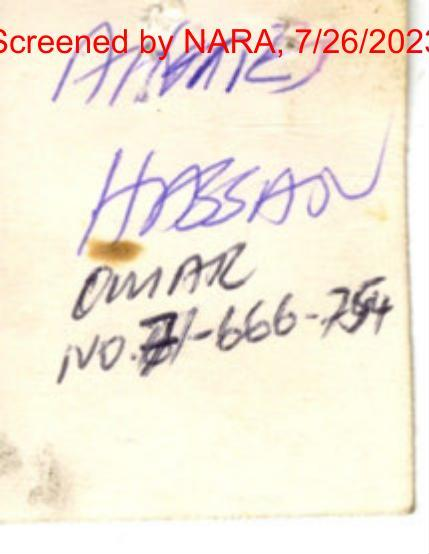 Screened by NARA, 7/26/2023
HASSAN
OMAR
NO. 71-666-754